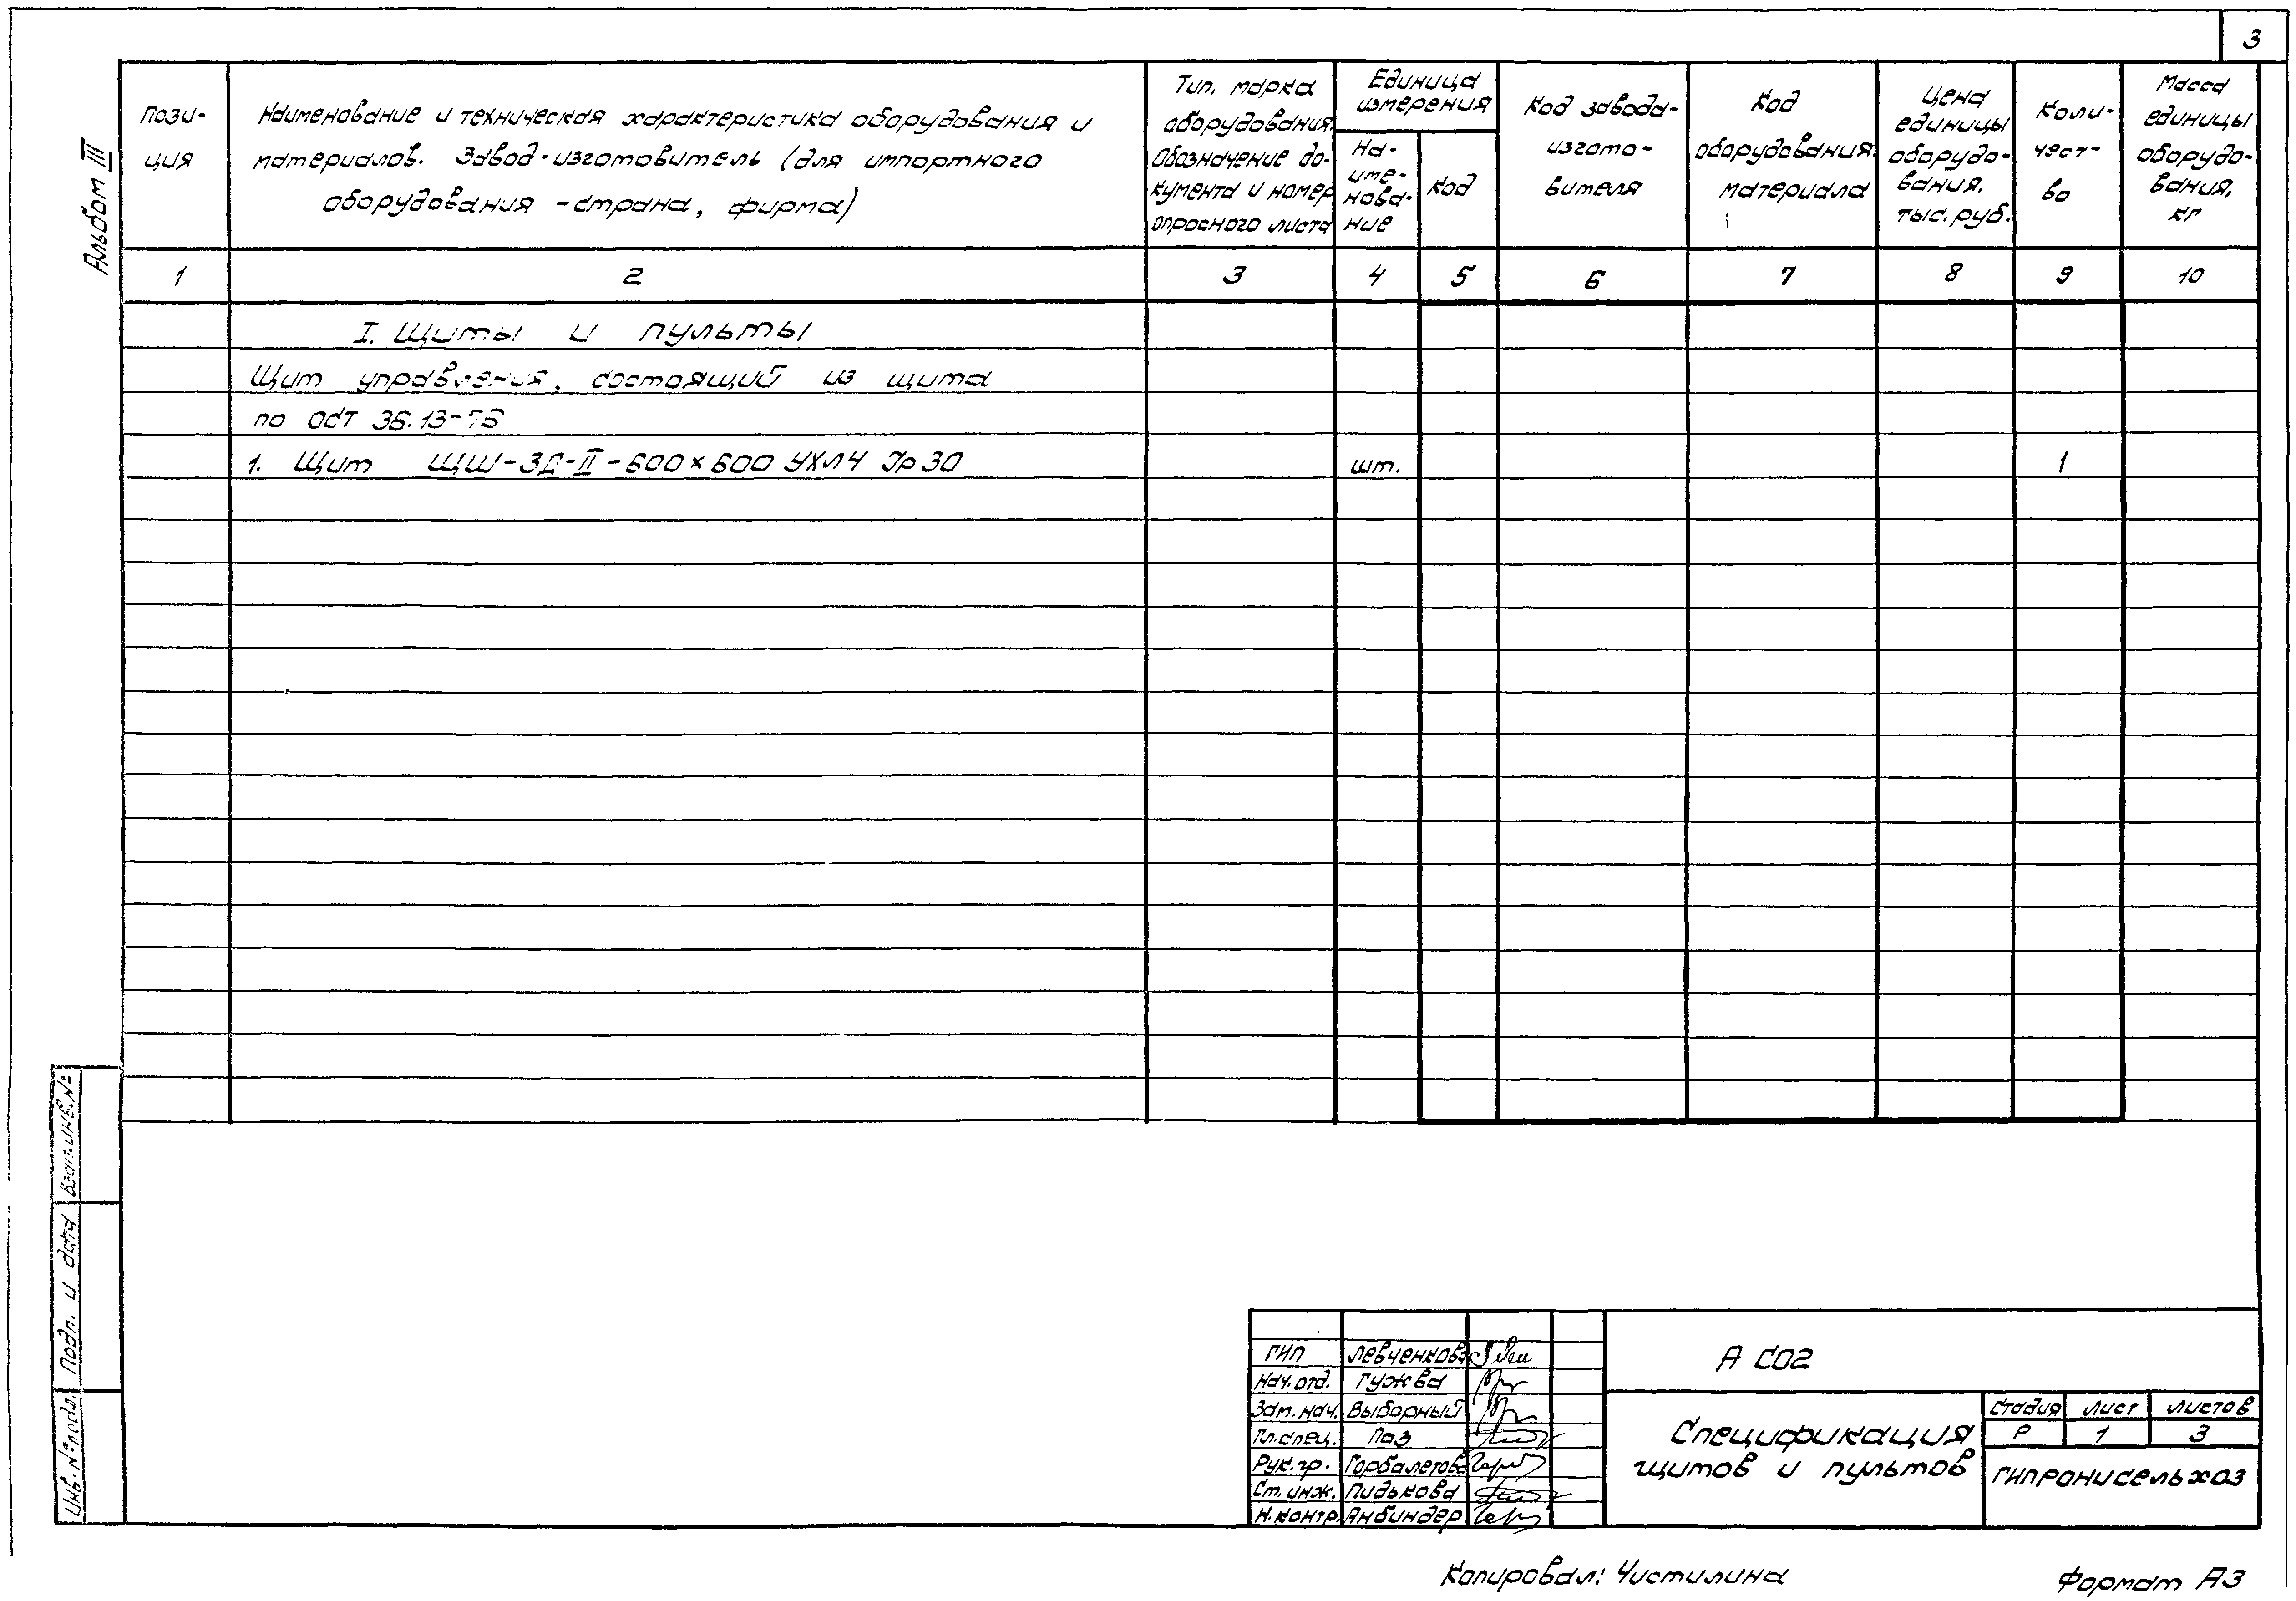 3
Альбом III
Пози-
ция
Наименование и техническая характеристика оборудования и
материалов. Завод-изготовитель (для импортного
оборудования - страна, фирма)
Тип, марка
оборудования.
Обозначение до-
кумента и номер
опросного листа
Единица
измерения
На-
име-
нова-
ние
Код
Код завода-
изгото-
вителя
Код
оборудования.
материала
Цена
единицы
оборудо-
вания,
тыс. руб.
Коли-
чест-
во
Масса
единицы
оборудо-
вания,
кг
1 2 3 4 5 6 7 8 9 10
I. Щиты и пульты
Щит управления, состоящий из щита
по ОСТ 36.13-76
1. Щит ЩШ-ЗД-II-600×600 УХЛ4 Jp30 шт. 1
Взам. инв. №
Подп. и дата
Инв. № подл.
ГИП Левченкова
Нач. отд. Гужва
Зам. нач. Выборный
Гл. спец. Паз
Рук. гр. Горбалетова
Ст. инж. Пидькова
Н. контр. Анбиндер
А СО2
Спецификация
щитов и пультов
стадия лист листов
Р 1 3
Гипронисельхоз
Копировал: Чистилина
Формат А3